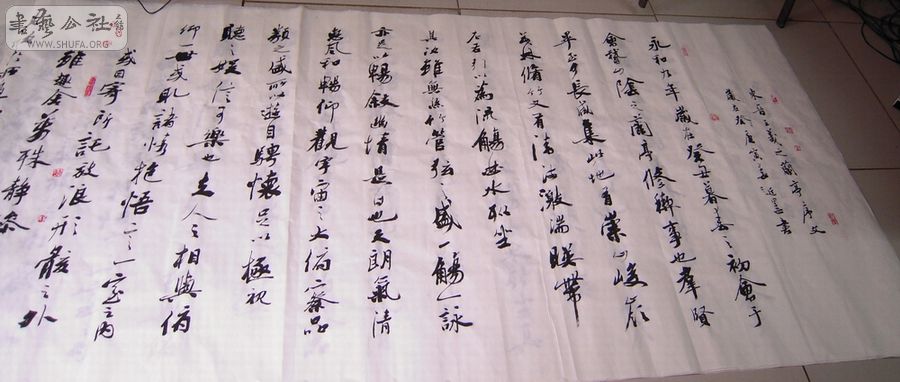 書藝公社
WWW.SHUFA.ORG
東晉王羲之蘭亭序文
永和九年歲在癸丑暮春之初會于
會稽山陰之蘭亭修禊事也羣賢
畢至少長咸集此地有崇山峻嶺
茂林脩竹又有清流激湍暎帶
左右引以為流觴曲水列坐
其次雖無絲竹管弦之盛一觴一詠
亦足以暢敘幽情是日也天朗氣清
惠風和暢仰觀宇宙之大俯察品
類之盛所以遊目騁懷足以極視
聽之娛信可樂也夫人之相與俯
仰一世或取諸情抱悟言一室之內
或因寄所託放浪形骸之外
雖趣舍萬殊靜躁